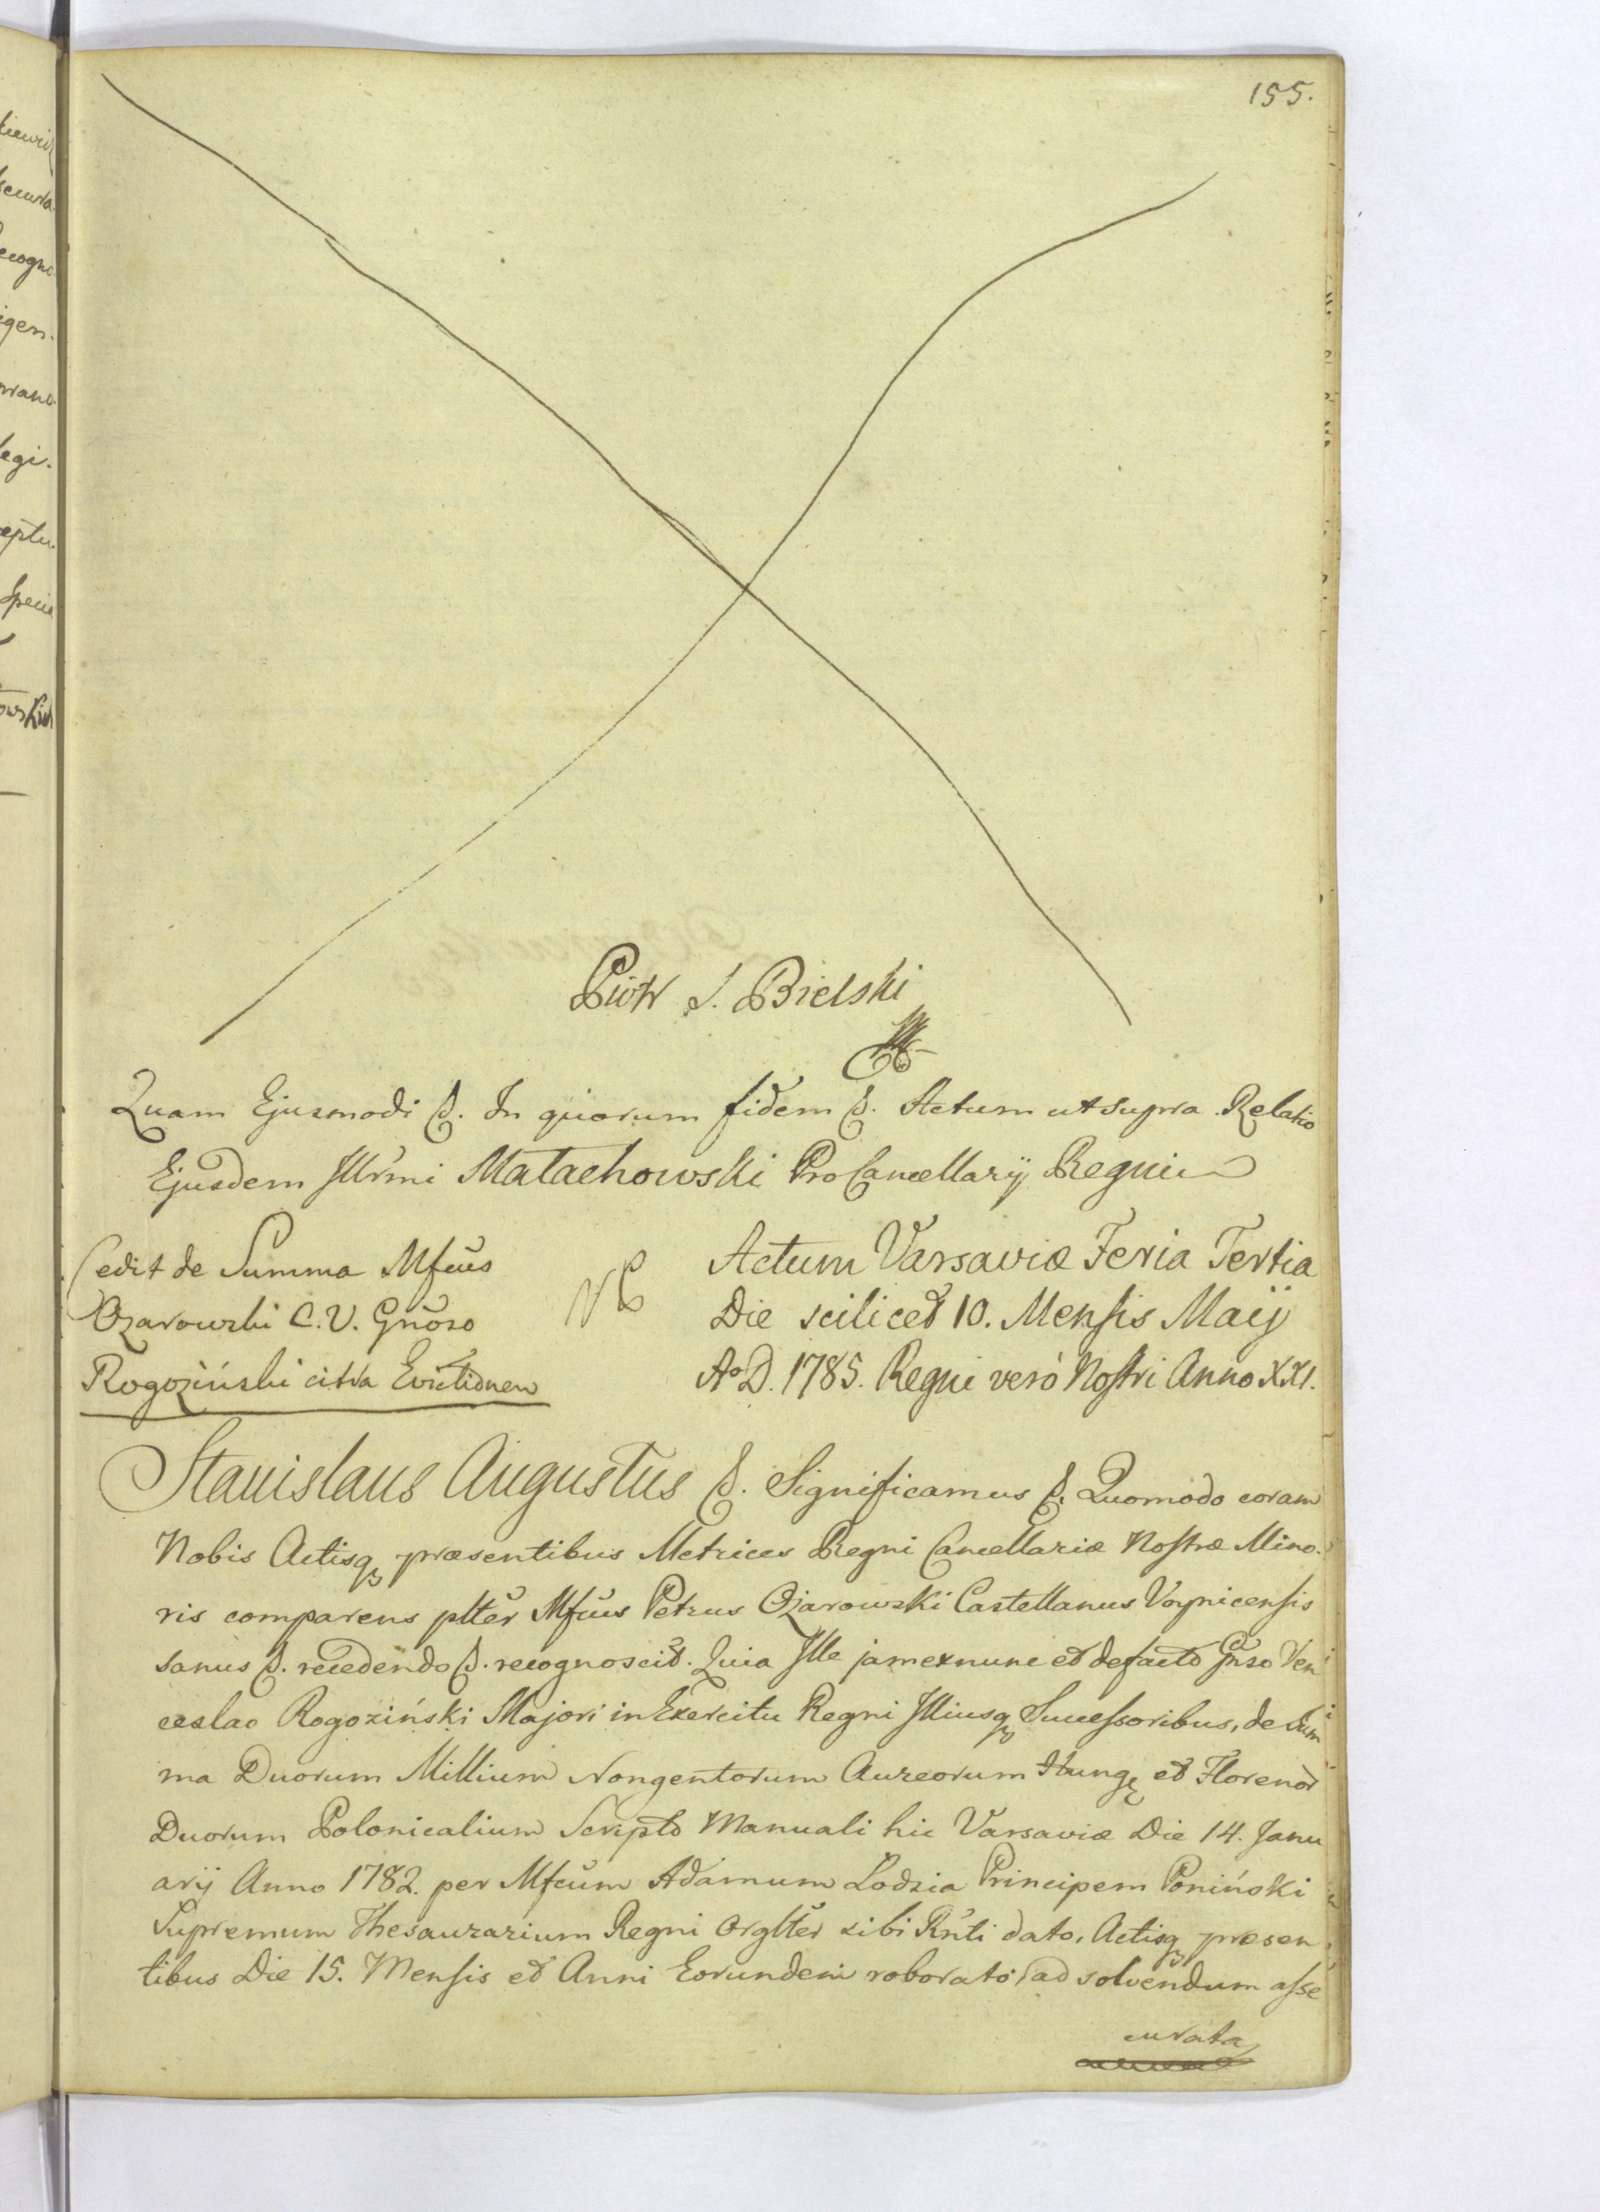 155.
Piotr S. Bielski
Quam Ejusmodi &. In quorum fidem &. Actum ut supra. Relatio
Ejusdem Illrm̃i Małachowski ProCancellarij Regni
Cedit de Summa Mfc̃us
Ożarowski C. V. Gñoso
Rogoziński citra Evictionem
Actum Varsaviæ Feria Tertia
Die scilicet 10. Mensis Maij
Aº D. 1785. Regni verò Nostri Anno XXI.
Stanislaus Augustus &. Significamus &. Quomodo coram
Nobis Actisq præsentibus Metrices Regni Cancellariæ Nostræ Mino-
ris comparens pltẽr Mfc̃us Petrus Ożarowski Castellanus Voynicensis
sanus &. recedendo &. recognoscit. Quia Ille jam ex nunc et de facto Gñso Ven
ceslao Rogoziński Majori in Exercitu Regni Illiusq Successoribus, de Sum
ma Duorum Millium Nongentorum Aureorum Hungq et Florenor
Duorum Polonicalium Scripto Manuali hic Varsaviæ Die 14. Janu
arij Anno 1782. per Mfc̃um Adamum Lodzia Principem Poniński
Supremum Thesaurarium Regni orgltẽr sibi Rñti dato, Actisq præsen
tibus Die 15. Mensis et Anni Eorundem roborato, ad solvendum asse
curata